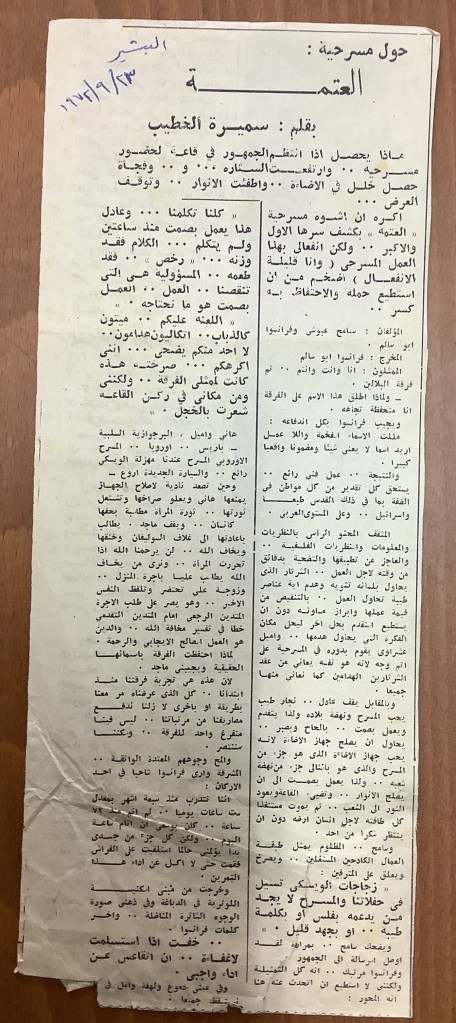 البشير
١٩٧٢/٩/٢٣
حول مسرحية :
العتمـــة
بقلم : سميرة الخطيب
ماذا يحصل اذا انتظم الجمهور في قاعة لحضور
مسرحية ٠٠ وارتفعت الستاره ٠٠٠ و ٠٠ وفجاة
حصل خلل في الاضاءة ٠٠ واطفئت الانوار ٠٠ وتوقف
العرض ٠٠٠
اكره ان اشوه مسرحية
« العتمه » بكشف سرها الاول
والاكبر ٠٠ ولكن انفعالي بهذا
العمل المسرحي ( وانا قليلة
الانفعال ) اضخم من ان
استطيع حمله والاحتفاظ به
كسر ٠٠
المؤلفان : سامح عبوشي وفرانسوا
ابو سالم ٠
المخرج : فرانسوا ابو سالم
الممثلون : انا وانت وانتم ٠٠ ثم
فرقة البلالين ٠
ـ ولماذا اطلق هذا الاسم على الفرقة
انا متحفظة تجاهه ٠
ويجيب فرانسوا بكل اندفاعه :
مللت الاسماء الفخمة واللا عمل
اريد اسما لا يعني شيئا ومضمونا واقعيا
كبيرا ٠
والنتيجة ٠٠ عمل فني رائع ٠٠
يستحق كل تقدير من كل مواطن في
الضفة بما في ذلك القدس طبعا
واسرائيل ٠٠ وعلى المستوى العربي ٠
المثقف المحشو الرأس بالنظريات
والمعلومات والنظريات الفلسفية ٠٠
والعاجز عن تطبيقها والتضحية بدقائق
من وقته لاجل العمل ٠٠ الثرثار الذي
يحاول بلسانه تشويه وهدم اية عناصر
طيبة تحاول العمل ٠٠ بالتنقيص من
قيمة عملها وابراز مساوئه دون ان
يستطيع تقديم حل اخر ليحل مكان
الفكرة التي يحاول هدمها ٠٠ واميل
عشراوي يقوم بدوره في المسرحية على
اتم وجه لانه هو نفسه يعاني من عقد
الثرثارين الهدامين كما نعاني منها
جميعا ٠
وبالمقابل يقف عادل ٠٠ نجار طيب
يحب المسرح ونهضة بلاده ولذا يتقدم
ويعمل بصمت ٠٠ بالحاح وبصبر ٠٠
يحاول ان يصلح جهاز الاضاءة لانه
يحب جهاز الاضاءة الذي هو جزء من
المسرح والذي هو بالتالي جزء من نهضة
شعبه ٠٠ ولذا يعمل بصمت الى ان
يصلح الانوار ٠٠ وتضيء القاعة ويعود
النور الى الشعب ٠٠ ثم يموت مستنفذا
كل طاقته لاجل انسان ارضه دون ان
ينتظر شكرا من احد ٠
وسامح ٠٠ المظلوم يمثل طبقة
العمال الكادحين المستغلين ٠٠ ويصرخ
ويعلق على المترفين :
« زجاجات الويسكي تسيل
في حفلاتنا والمسرح لا يجد
من يدعمه بفلس او بكلمة
طيبه ٠٠ او بجهد قليل ٠ »
ويضحك سامح ٠٠ بمرارة لقد
اوصل الرسالة الى الجمهور
وفرانسوا مرتبك ٠٠ انه كل التمثيلية
ولكنني لا استطيع ان اتحدث عنه هنا
انه المحور :
« كلنا تكلمنا ٠٠٠ وعادل
هذا يعمل بصمت منذ ساعتين
ولم يتكلم ٠٠٠ الكلام فقد
وزنه ٠٠٠ « رخص » ٠٠ فقد
طعمه ٠٠ المسؤولية هي التي
تنقصنا ٠٠ العمل ٠٠ العمل
بصمت هو ما نحتاجه ٠ »
« اللعنه عليكم ٠٠ ميتون
كالذباب ٠٠ اتكاليون هداءون ٠٠
لا احد منكم يضحي ٠٠٠ انني
اكرهكم ٠٠٠ صرخته هذه
كانت لممثلي الفرقة ٠٠ ولكنني
ومن مكاني في ركن القاعه
شعرت بالخجل ٠ »
هاني واميل ، البرجوازية السلبية
ـ باريس ٠٠ اوروبا ٠٠ المسرح
الاوروبي المسرح عندنا مهزلة الويسكي
رائع ٠٠ والسيارة الجديدة اروع ـ
وحين تصعد نادية لاصلاح الجهاز
يمنعها هاني ويعلو صراخها وتشتعل
ثورتها ٠٠ ثورة المراة مطالبة بحقها
كانسان ٠٠ ويقف ماجد ٠ يطالب
باعادتها الى غلاف السوليفان وخنقها
ويخاف الله ٠٠ لن يرحمنا الله اذا
تحررت المراة ٠٠ ونرى من يخاف
الله يطالب علنيا باجرة المنزل ٠٠
وزوجة على تحتضر وتلفظ النفس
الاخير ٠٠ وهو يصر على طلب الاجرة
المتدين الرجعي امام المتدين التقدمي
خطا في تفسير مخافة الله ٠٠ والدين
هو العمل الصالح الايجابي والرحمة ٠
لماذا احتفظت الفرقة باسمائها
الحقيقية ويجيبني ماجد ٠
لان هذه هي تجربة فرقتنا منذ
ابتدانا ٠٠ كل الذي عرضناه مر معنا
بطريقة او باخرى لا زلنا ندفع
مصاريفنا من مرتباتنا ٠٠ ليس فينا
متفرغ واحد للفرقة ٠٠ ولكننا
سننتصر ٠
والمح وجوههم المعتدة الواثقة ٠٠
المشرقة وارى فرانسوا ناحيا في احد
الاركان :
اننا نتدرب منذ سبعة اشهر بمعدل
ست ساعات يوميا ٠٠
اليوم ٠٠ ولكن كل جزء من جسدي
بدا يؤلمني حالما استلقيت على الفراش
فقمت حتى لا اكسل عن اداء هذا
التمرين ٠
وخرجت من مبنى الكنيسة
اللوثرية في الدباغة وفي ذهني صورة
الوجوه الثائرة المناضلة ٠٠ واخر
كلمات فرانسوا ٠
٠٠ خفت اذا استسلمت
لاغفاءة ٠٠ ان اتقاعس عن
اداء واجبي ٠
وفي عيني دموع ولهفة وامل في
جميعا ٠